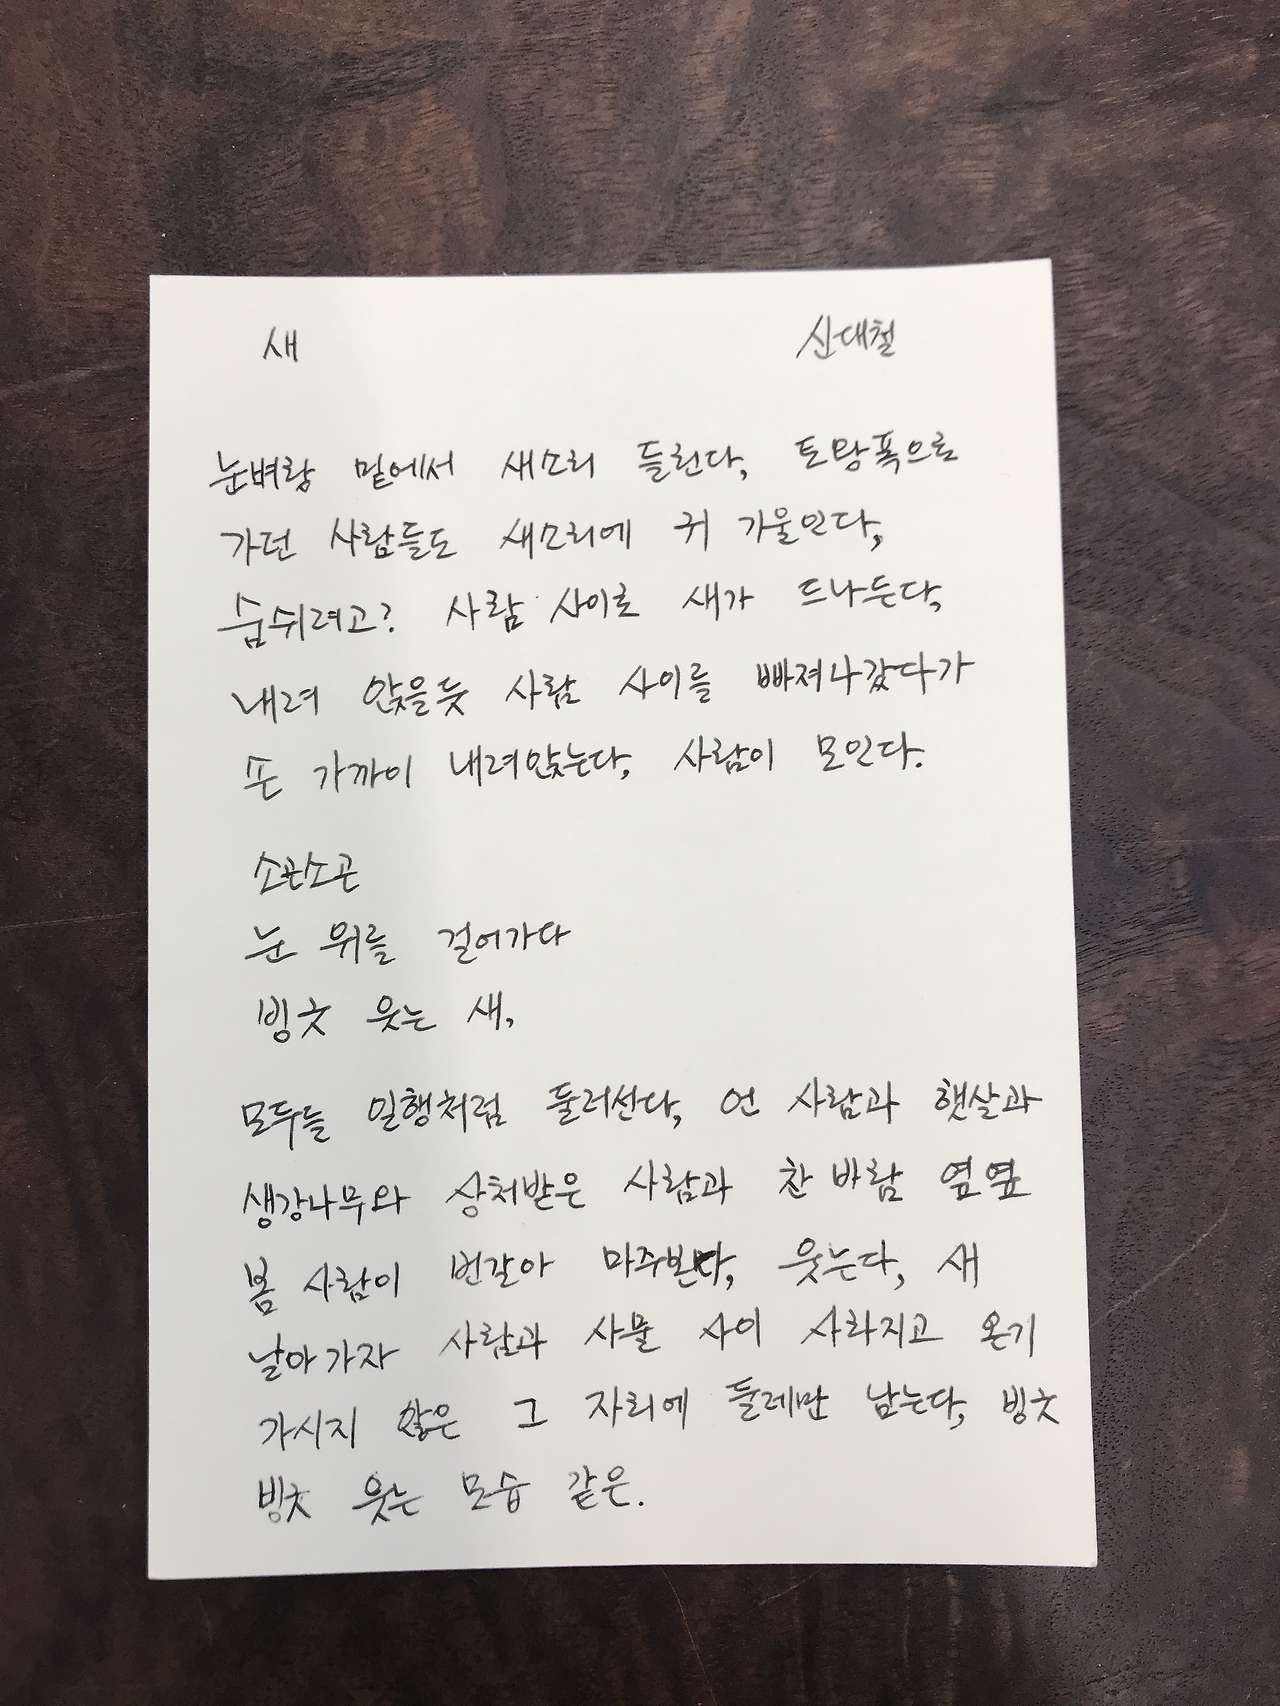 새 신대철
눈벼랑 밑에서 새소리 들린다, 토왕폭으로
가던 사람들도 새소리에 귀 기울인다,
숨쉬려고? 사람 사이로 새가 드나든다,
내려 앉을듯 사람 사이를 빠져나갔다가
또 가까이 내려앉는다, 사람이 모인다.
소곤소곤
눈 위를 걸어가다
빙긋 웃는 새,
모두들 일행처럼 둘러선다, 언 사람과 햇살과
생강나무와 상처받은 사람과 찬 바람 옆옆
봄 사람이 번갈아 마주본다, 웃는다, 새
날아가자 사람과 사물 사이 사라지고 온기
가시지 않은 그 자리에 둘레만 남는다, 빙긋
빙긋 웃는 모습 같은.